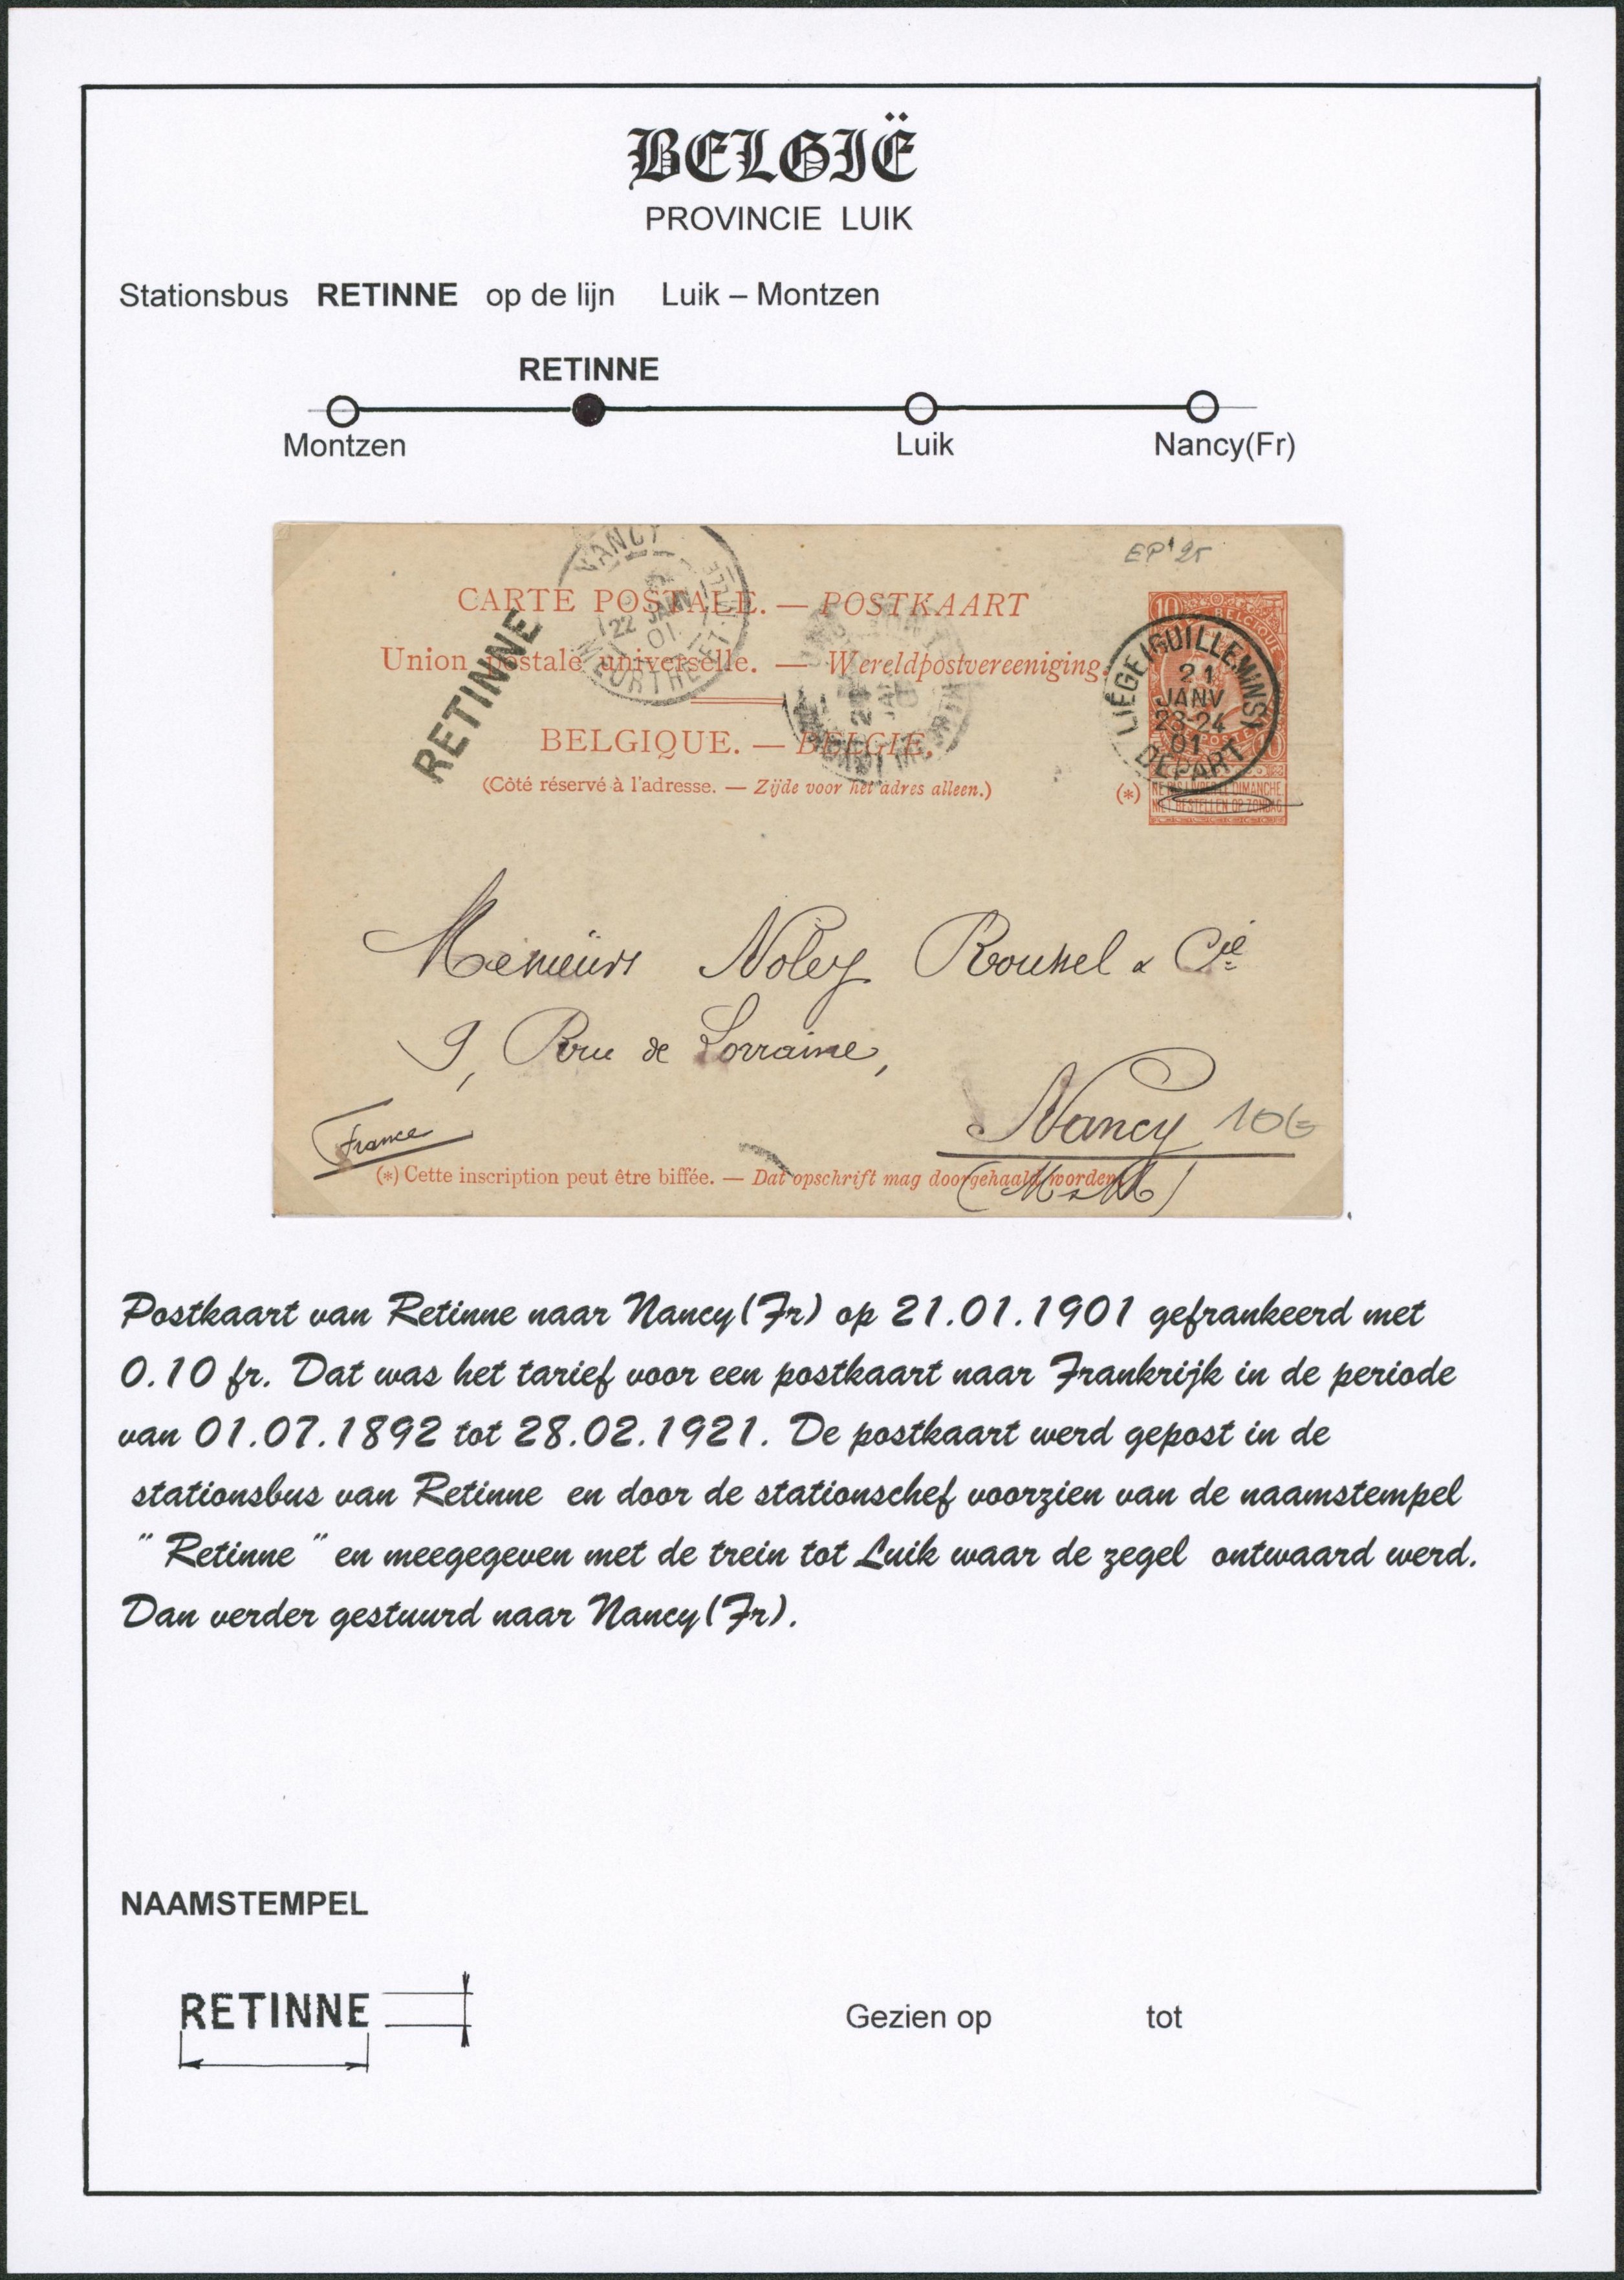 BELGIË
PROVINCIE LUIK
Stationsbus RETINNE op de lijn Luik – Montzen
RETINNE
Montzen Luik Nancy(Fr)
EP' 25
CARTE POSTALE. — POSTKAART
Union postale universelle. — Wereldpostvereeniging.
BELGIQUE. — BELGIE.
(Côté réservé à l'adresse. — Zijde voor het adres alleen.)
RETINNE
NANCY
22 JANV
01
MEURTHE ET
10
BELGIQUE
LIÉGE (GUILLEMINS)
21
JANV
23-24
01
DÉPART
(*)
NE PAS LIVRER LE DIMANCHE
NIET BESTELLEN OP ZONDAG
Messieurs Noley Roussel & Cie
9, Rue de Lorraine,
Nancy
10€
France
(M & M)
(*) Cette inscription peut être biffée. — Dat opschrift mag doorgehaald worden.
Postkaart van Retinne naar Nancy(Fr) op 21.01.1901 gefrankeerd met
0.10 fr. Dat was het tarief voor een postkaart naar Frankrijk in de periode
van 01.07.1892 tot 28.02.1921. De postkaart werd gepost in de
stationsbus van Retinne en door de stationschef voorzien van de naamstempel
" Retinne " en meegegeven met de trein tot Luik waar de zegel ontwaard werd.
Dan verder gestuurd naar Nancy(Fr).
NAAMSTEMPEL
RETINNE
Gezien op tot